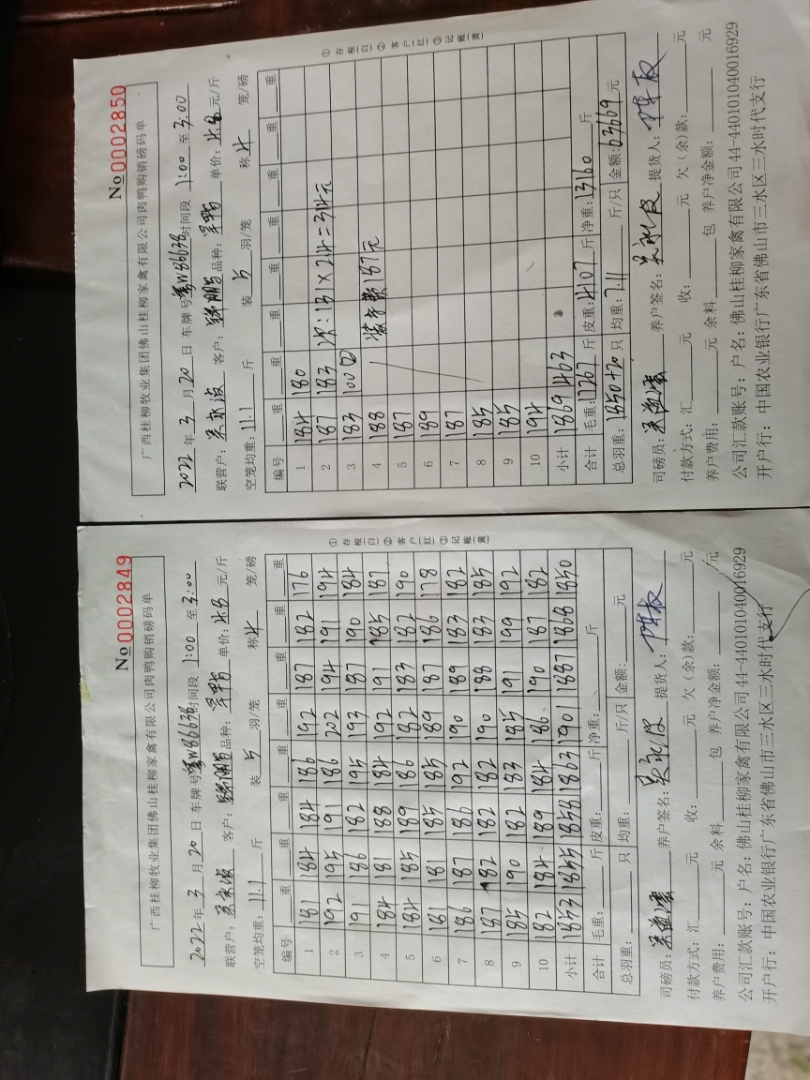 No 0002849
广西桂柳牧业集团佛山桂柳家禽有限公司肉鸭购销磅码单
2022年3月20日 车牌号 W86638 时间段 1:00 至 3:00
联营户: 客户: 品种: 单价: 4.8 元/斤
空笼均重: 11.1 斤 装 5 羽/笼 称 4 笼/磅
编号 重 重 重 重 重 重 重 重
1 181 184 184 186 192 187 182 176
2 192 195 191 186 202 194 191 194
3 191 186 182 195 193 187 190 184
4 184 181 188 184 192 191 185 187
5 184 185 189 186 182 183 182 190
6 181 181 185 185 189 187 186 178
7 186 187 186 192 190 189 183 182
8 187 182 182 182 190 188 183 185
9 185 190 182 183 185 191 199 192
10 182 184 189 184 186 190 187 182
小计 1853 1855 1858 1863 1901 1887 1868 1850
合计 毛重: 斤 皮重: 斤 净重: 斤
总羽重: 只 均重: 斤/只 金额: 元
司磅员: 养户签名: 提货人:
付款方式: 汇 元 收: 元 欠(余)款: 元
养户费用: 元 余料 包 养户净金额: 元
公司汇款账号: 户名: 佛山桂柳家禽有限公司 44-440101040016929
开户行: 中国农业银行广东省佛山市三水区三水时代支行
①存根(白)②客户(红)③记账(黄)
No 0002850
广西桂柳牧业集团佛山桂柳家禽有限公司肉鸭购销磅码单
2022年3月20日 车牌号 W86638 时间段 1:00 至 3:00
联营户: 客户: 品种: 单价: 4.8 元/斤
空笼均重: 11.1 斤 装 5 羽/笼 称 4 笼/磅
编号 重 重 重 重 重 重 重 重
1 184 180
2 187 183 :131×2.4=314元
3 183 100②
4 188 187元
5 187
6 189
7 187
8 185
9 185
10 194
小计 1869 463
合计 毛重: 17267 斤 皮重: 4107 斤 净重: 13160 斤
总羽重: 1850+20 只 均重: 7.11 斤/只 金额: 63669 元
司磅员: 养户签名: 提货人:
付款方式: 汇 元 收: 元 欠(余)款: 元
养户费用: 元 余料 包 养户净金额: 元
公司汇款账号: 户名: 佛山桂柳家禽有限公司 44-440101040016929
开户行: 中国农业银行广东省佛山市三水区三水时代支行
①存根(白)②客户(红)③记账(黄)